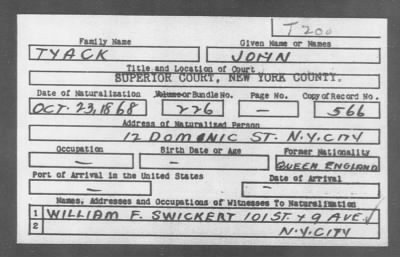 T 200
Family Name Given Name or Names
TYACK JOHN
Title and Location of Court
SUPERIOR COURT, NEW YORK COUNTY.
Date of Naturalization Volume or Bundle No. Page No. Copy of Record No.
OCT. 23, 1868 226 — 566
Address of Naturalized Person
12 DOMONIC ST. N.Y. CITY
Occupation Birth Date or Age Former Nationality
— — QUEEN ENGLAND
Port of Arrival in the United States Date of Arrival
— —
Names, Addresses and Occupations of Witnesses To Naturalization
1 WILLIAM F. SWICKERT 101 ST. + 9 AVE.
2 N.Y. CITY